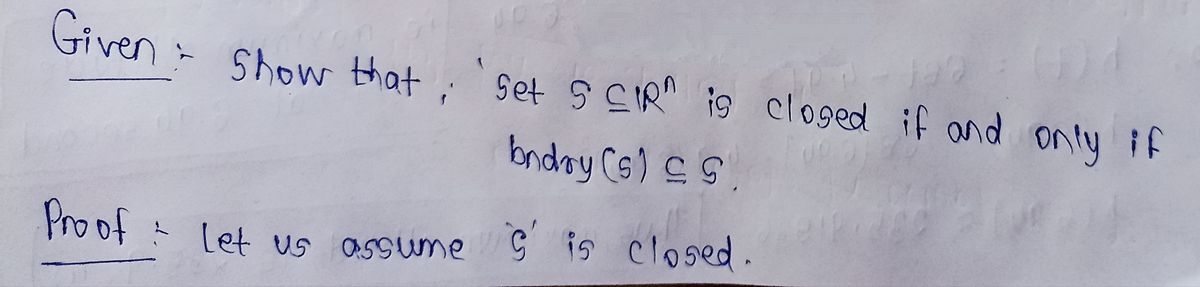 Given :- Show that, 'Set S ⊆ ℝⁿ is closed if and only if
bndry(S) ⊆ S'.
Proof :- Let us assume 'S' is closed.